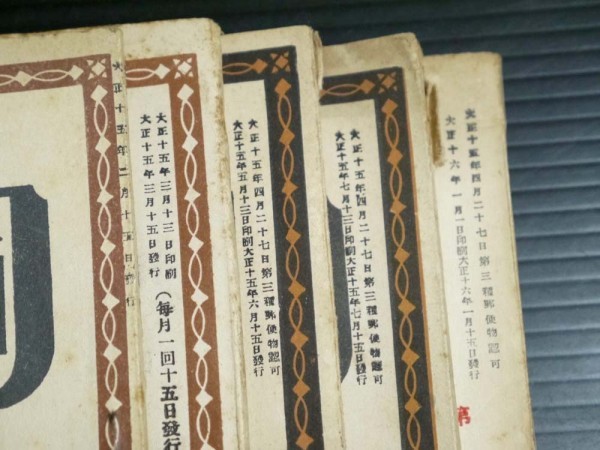 大正十五年二月十五日發行
大正十五年三月十三日印刷
大正十五年三月十五日發行
(每月一回十五日發行
大正十五年四月二十七日第三種郵便物認可
大正十五年五月十三日印刷大正十五年六月十五日發行
大正十五年四月二十七日第三種郵便物認可
大正十五年七月十三日印刷大正十五年七月十五日發行
大正十五年四月二十七日第三種郵便物認可
大正十六年一月一日印刷大正十六年一月十五日發行
第